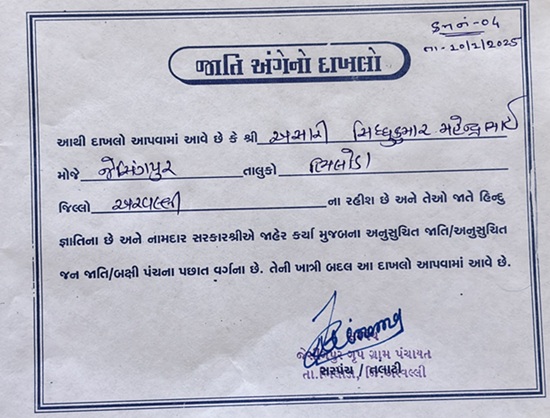 ક્રમ નં-04
તા-20/2/2025
જાતિ અંગેનો દાખલો
આથી દાખલો આપવામાં આવે છે કે શ્રી અસારી સિધ્ધુકુમાર મહેન્દ્રભાઈ
મોજે જેસિંગપુર તાલુકો ભિલોડા
જિલ્લો અરવલ્લી ના રહીશ છે અને તેઓ જાતે હિન્દુ
જ્ઞાતિના છે અને નામદાર સરકારશ્રીએ જાહેર કર્યા મુજબના અનુસુચિત જાતિ/અનુસુચિત
જન જાતિ/બક્ષી પંચના પછાત વર્ગના છે. તેની ખાત્રી બદલ આ દાખલો આપવામાં આવે છે.
ગૃપ ગ્રામ પંચાયત
સરપંચ / તલાટી
તા.ભિલોડા, જિ.અરવલ્લી